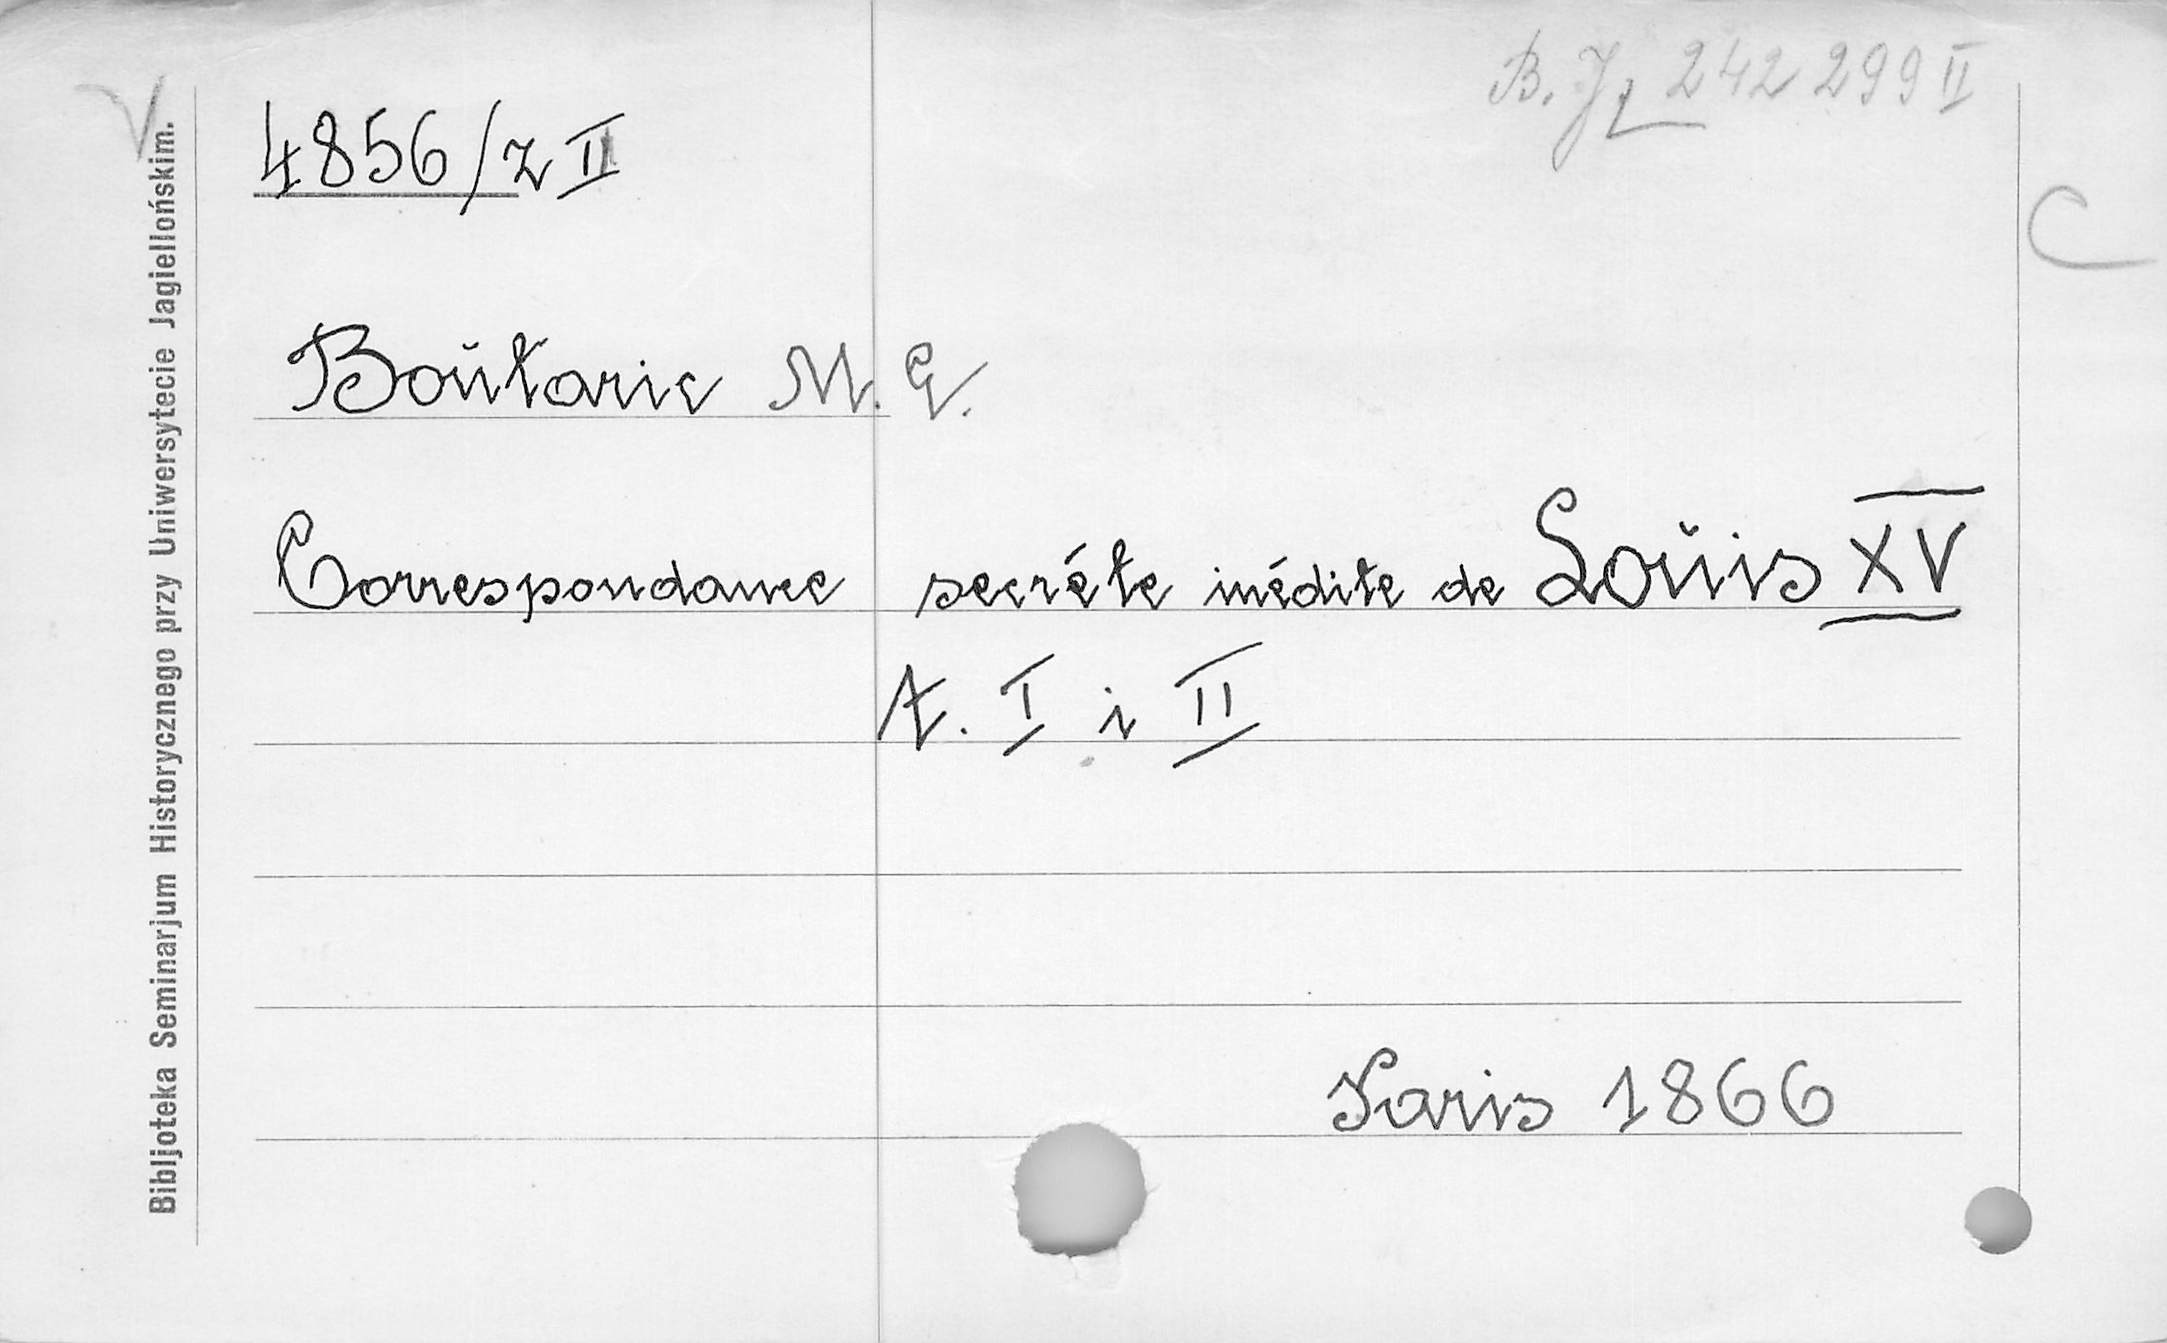 B. J. 242 299 II
V
4856/z II
C
Boŭtaric M. E.
Correspondance secréte inédite de Loŭis XV
t. I i II
Paris 1866
Bibljoteka Seminarjum Historycznego przy Uniwersytecie Jagiellońskim.